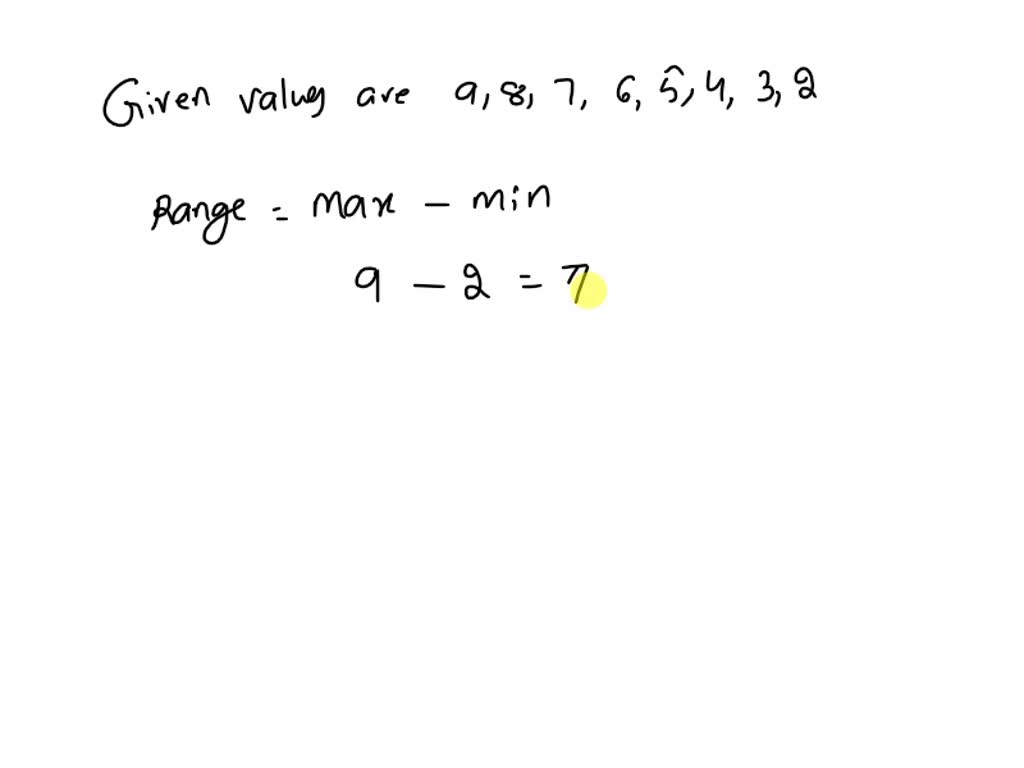 Given values are 9, 8, 7, 6, 5, 4, 3, 2
Range = max - min
9 - 2 = 7